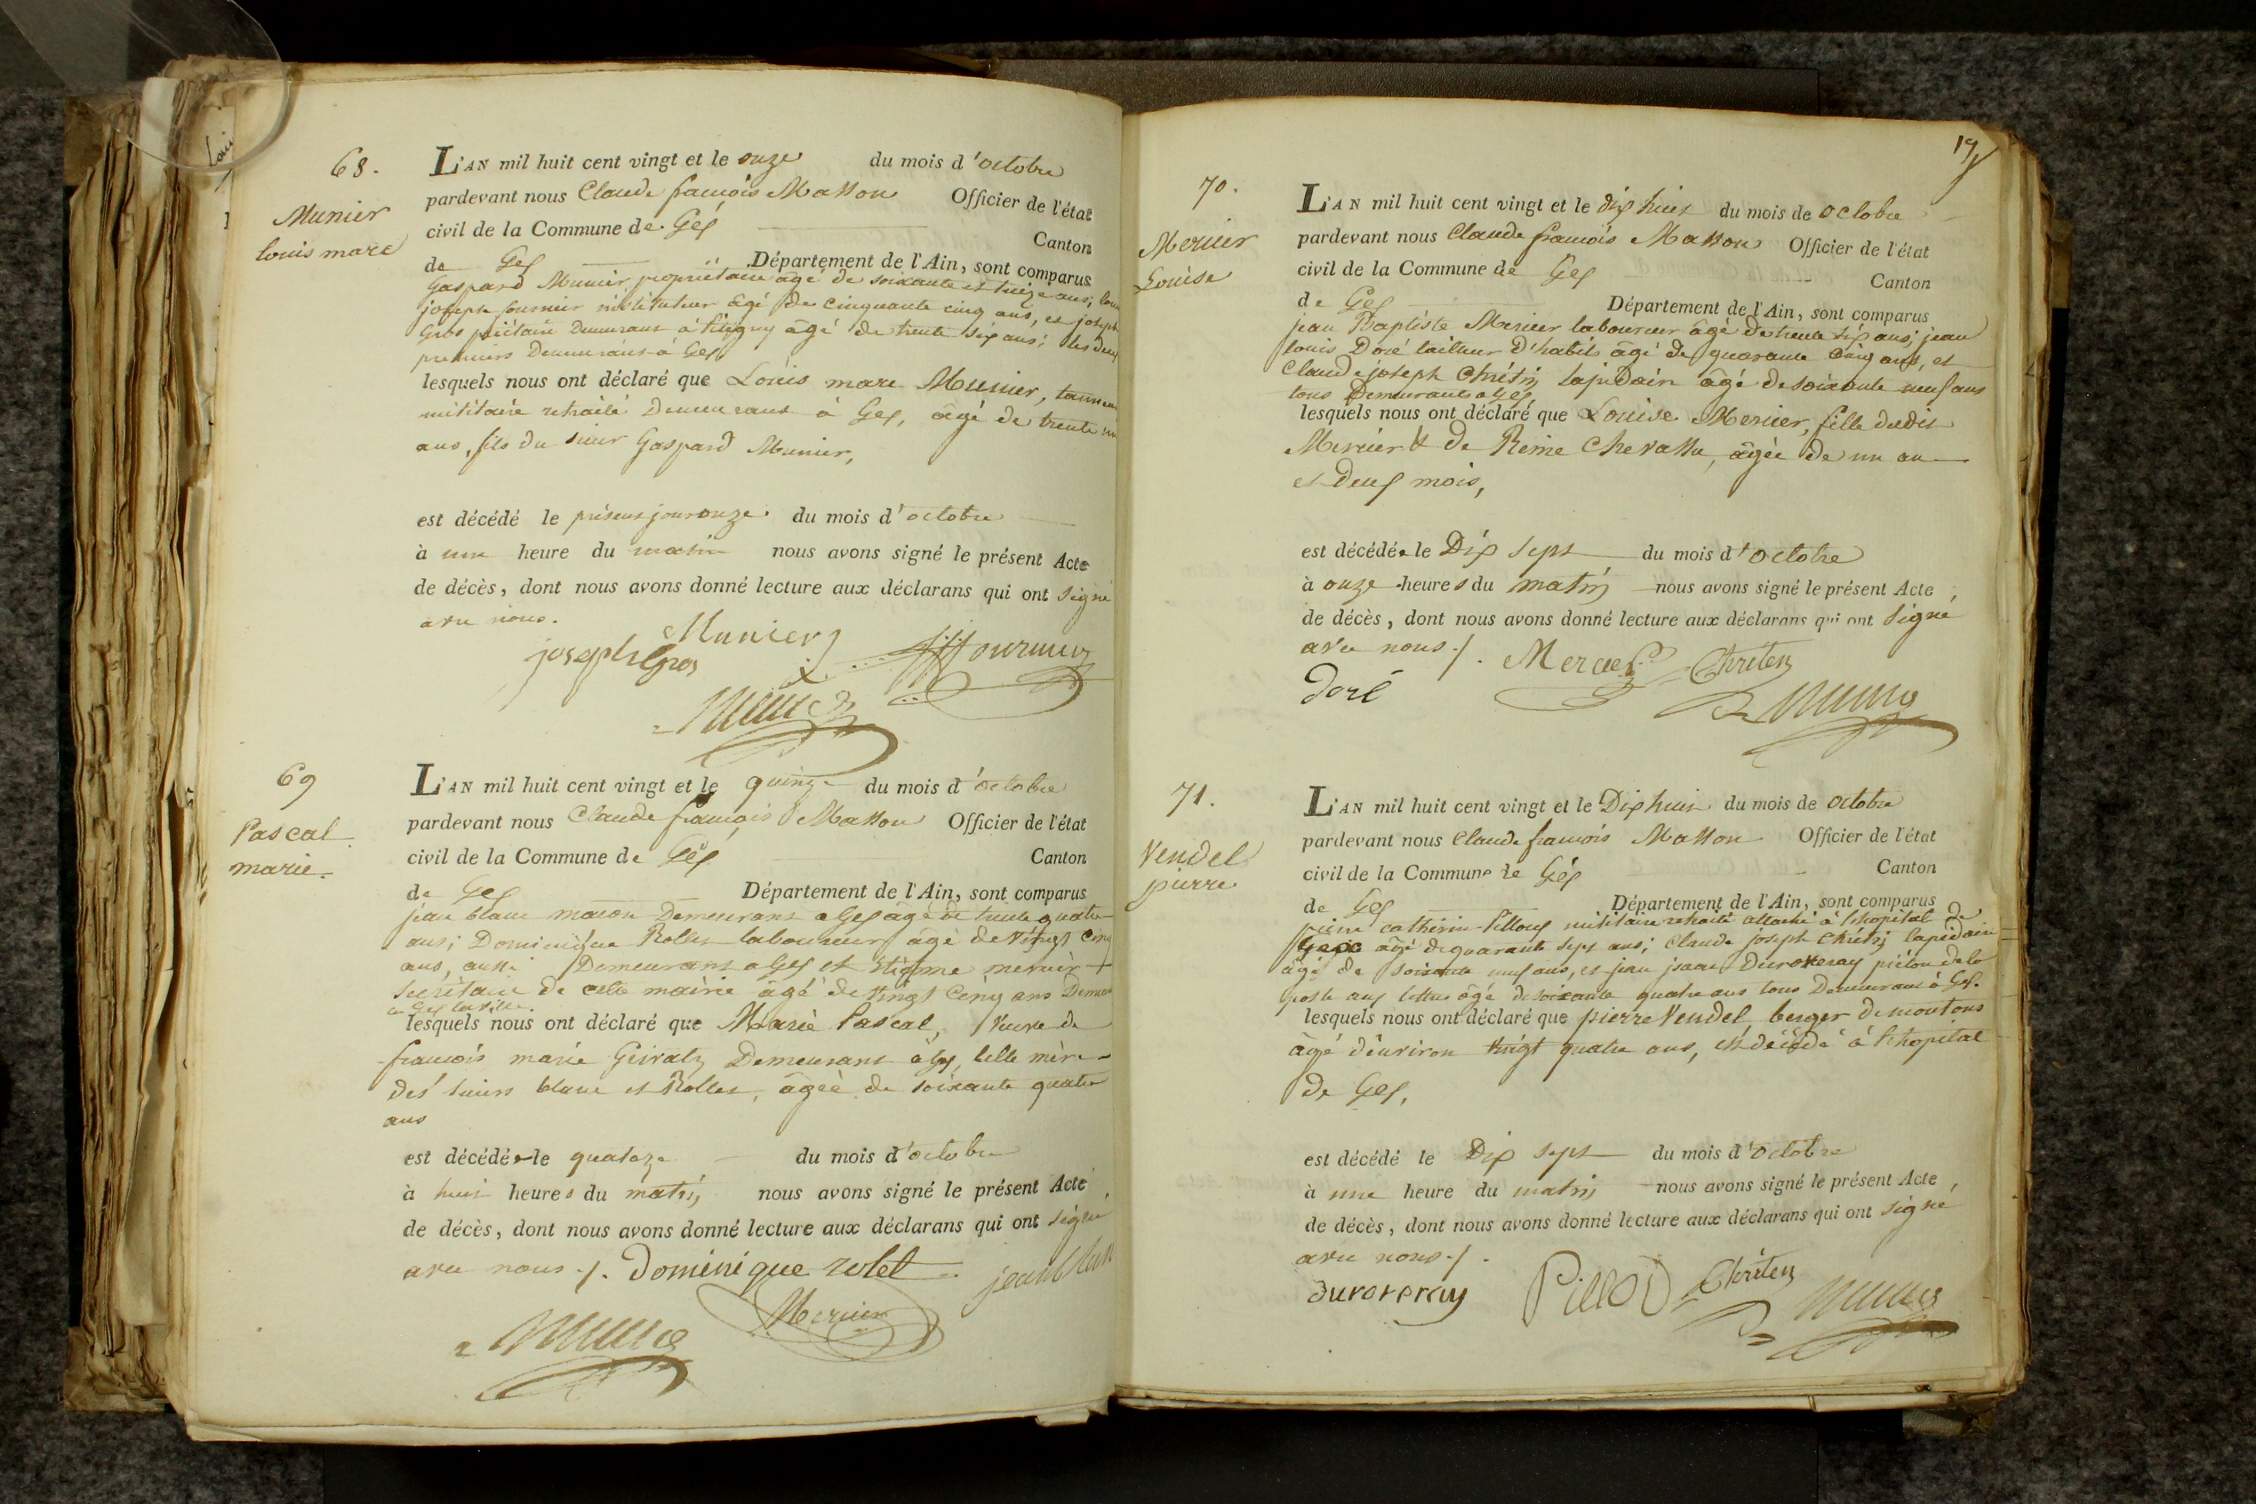 68.
Munier
louis marc
L'AN mil huit cent vingt et le onze du mois d'octobre
pardevant nous Claude françois Masson Officier de l'état
civil de la Commune de Gex Canton
de Gex Département de l'Ain, sont comparus
Gaspard Munier, propriétaire âgé de soixante et treize ans; louis
joseph fournier instituteur âgé de cinquante cinq ans, et joseph
Gros demeurant à âgé de trente six ans; les deux
premiers demeurans à Gex
lesquels nous ont déclaré que Louis marc Munier, tanneur
militaire retraité demeurant à Gex, âgé de trente un
ans, fils du sieur Gaspard Munier,
est décédé le présent jour onze du mois d'octobre
à une heure du matin nous avons signé le présent Acte
de décès, dont nous avons donné lecture aux déclarans qui ont signé
avec nous.
Munier
joseph Gros
fournier
69
Pascal
marie.
L'AN mil huit cent vingt et le quinze du mois d'octobre
pardevant nous Claude françois Masson Officier de l'état
civil de la Commune de Gex Canton
de Gex Département de l'Ain, sont comparus
jean blanc maçon Demeurant a Gex âgé de trente quatre
ans; Dominique Rollet laboureur âgé de vingt cinq
ans, aussi Demeurant a Gex et Etienne mercier
secrétaire de cette mairie âgé de vingt cinq ans Demeurant
a Gex la ville.
lesquels nous ont déclaré que Marie Pascal, veuve de
francois marie Demeurant à Gex, belle mère
des sieurs blanc et Rollet, âgée de soixante quatre
ans
est décédée le quatorze du mois d'octobre
à huit heures du matin nous avons signé le présent Acte
de décès, dont nous avons donné lecture aux déclarans qui ont signé
avec nous ./. Dominique rolet jean blanc
Mercier
19
70.
Mercier
Louise
L'AN mil huit cent vingt et le dix huit du mois de octobre
pardevant nous Claude françois Masson Officier de l'état
civil de la Commune de Gex Canton
de Gex Département de l'Ain, sont comparus
jean Baptiste Mercier laboureur âgé de trente six ans; jean
louis Doré tailleur d'habits âgé de quarante cinq ans, et
Claude joseph Chrétin lapidair âgé de soixante neuf ans
tous Demeurants a Gex
lesquels nous ont déclaré que Louise Mercier, fille dudit
Mercier & de Reine Chevassu, âgée de un an
et deux mois,
est décédée le Dix sept du mois d'octobre
à onze heures du matin nous avons signé le présent Acte
de décès, dont nous avons donné lecture aux déclarans qui ont signé
avec nous ./. Mercier Chréten
Doré
71.
Vendel
pierre
L'AN mil huit cent vingt et le Dix huit du mois de octobre
pardevant nous Claude francois Masson Officier de l'état
civil de la Commune de Gex Canton
de Gex Département de l'Ain, sont comparus
pierre catherin Pilloux militaire retraité attaché à l'hopital de
Gex âgé de quarante sept ans; Claude joseph Chrétin lapidaire
âgé de soixante neuf ans, et jean jsaac Duroveray piéton de la
poste aux lettres âgé de soixante quatre ans tous Demeurant à Gex.
lesquels nous ont déclaré que pierre Vendel, berger de moutons
âgé d'environ vingt quatre ans, est décédé à l'hopital
de Gex,
est décédé le Dix sept du mois d'octobre
à une heure du matin nous avons signé le présent Acte
de décès, dont nous avons donné lecture aux déclarans qui ont signé
avec nous ./.
duroveray Pillod Chréten